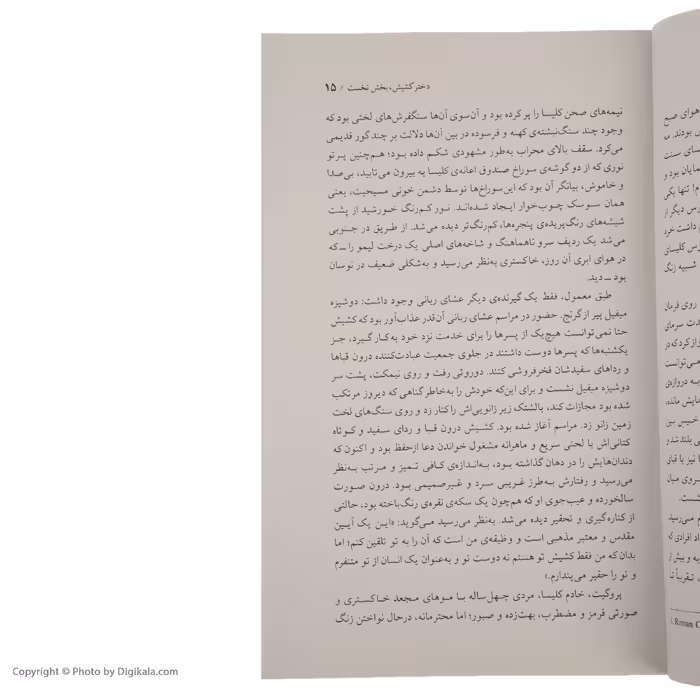 دختر کشیش، بخش نخست / ۱۵
نیمه‌های صحن کلیسا را پر کرده بود و آن‌سوی آن‌ها سنگفرش‌های لختی بود که
وجود چند سنگ‌نبشته‌ی کهنه و فرسوده در بین آن‌ها دلالت بر چند گور قدیمی
می‌کرد. سقف بالای محراب به‌طور مشهودی شکم داده بود؛ هم‌چنین پرتو
نوری که از دو گوشه‌ی سوراخ صندوق اعانه‌ی کلیسا به بیرون می‌تابید، بی‌صدا
و خاموش، بیانگر آن بود که این سوراخ‌ها توسط دشمن خونی مسیحیت، یعنی
همان سوسک چوب‌خوار ایجاد شده‌اند. نور کم‌رنگ خورشید از پشت
شیشه‌های رنگ‌پریده‌ی پنجره‌ها، کم‌رنگ‌تر دیده می‌شد. از طریق در جنوبی
می‌شد یک ردیف سرو ناهماهنگ و شاخه‌های اصلی یک درخت لیمو را ــ که
در هوای ابری آن روز، خاکستری به‌نظر می‌رسید و به‌شکلی ضعیف در نوسان
بود ــ دید.
طبق معمول، فقط یک گیرنده‌ی دیگر عشای ربانی وجود داشت: دوشیزه
میفیل پیر از گرنج. حضور در مراسم عشای ربانی آن‌قدر عذاب‌آور بود که کشیش
حتا نمی‌توانست هیچ‌یک از پسرها را برای خدمت نزد خود به‌کار گیرد، جز
یکشنبه‌ها که پسرها دوست داشتند در جلوی جمعیت عبادت‌کننده درون قباها
و رداهای سفیدشان فخرفروشی کنند. دوروتی رفت و روی نیمکت، پشت سر
دوشیزه میفیل نشست و برای این‌که خودش را به‌خاطر گناهی که دیروز مرتکب
شده بود مجازات کند، بالشتک زیر زانویی‌اش را کنار زد و روی سنگ‌های لخت
زمین زانو زد. مراسم آغاز شده بود. کشیش درون قبا و ردای سفید و کوتاه
کتانی‌اش با لحنی سریع و ماهرانه مشغول خواندن دعا از حفظ بود و اکنون که
دندان‌هایش را در دهان گذاشته بود، به‌اندازه‌ی کافی تمیز و مرتب به‌نظر
می‌رسید و رفتارش به‌طرز غریبی سرد و غیرصمیمی بود. درون صورت
سالخورده و عیب‌جوی او که هم‌چون یک سکه‌ی نقره‌ی رنگ‌باخته بود، حالتی
از کناره‌گیری و تحقیر دیده می‌شد. به‌نظر می‌رسید می‌گوید: «این یک آیین
مقدس و معتبر مذهبی است و وظیفه‌ی من است که آن را به تو تلقین کنم؛ اما
بدان که من فقط کشیش تو هستم نه دوست تو و به‌عنوان یک انسان از تو متنفرم
و تو را حقیر می‌پندارم.»
پروگیت، خادم کلیسا، مردی چهل‌ساله با موهای مجعد خاکستری و
صورتی قرمز و مضطرب، بهت‌زده و صبور؛ اما محترمانه، درحال نواختن زنگ
Copyright © Photo by Digikala.com